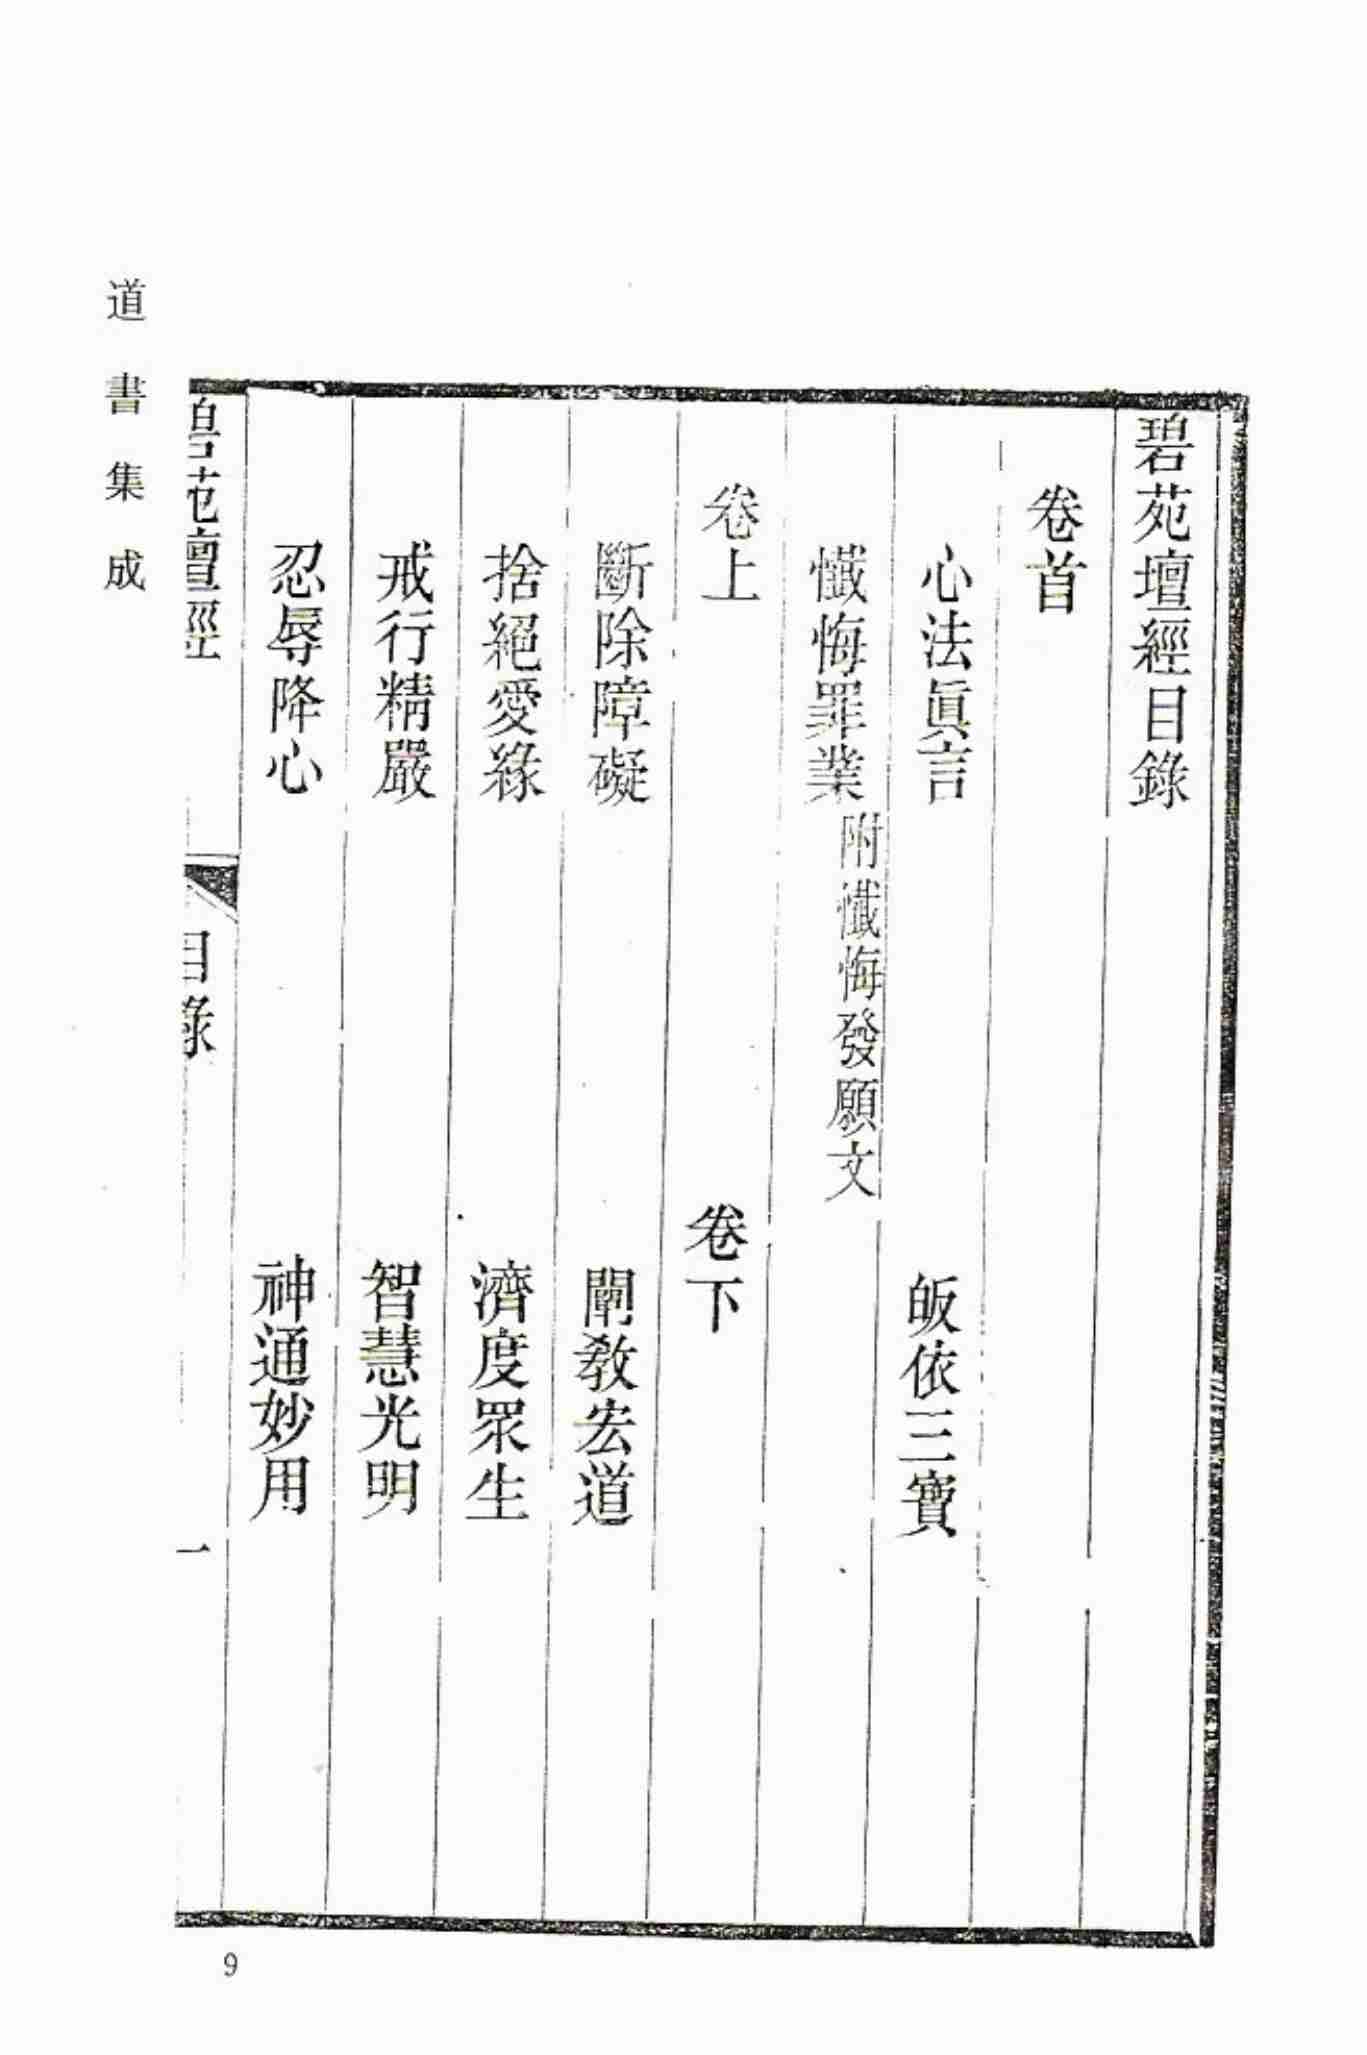 碧苑壇經目錄
卷首
心法眞言
皈依三寶
懺悔罪業附懺悔發願文
卷上
卷下
斷除障礙
闡敎宏道
捨絕愛緣
濟度眾生
戒行精嚴
智慧光明
忍辱降心
神通妙用
碧苑壇經
目錄
一
道書集成
9